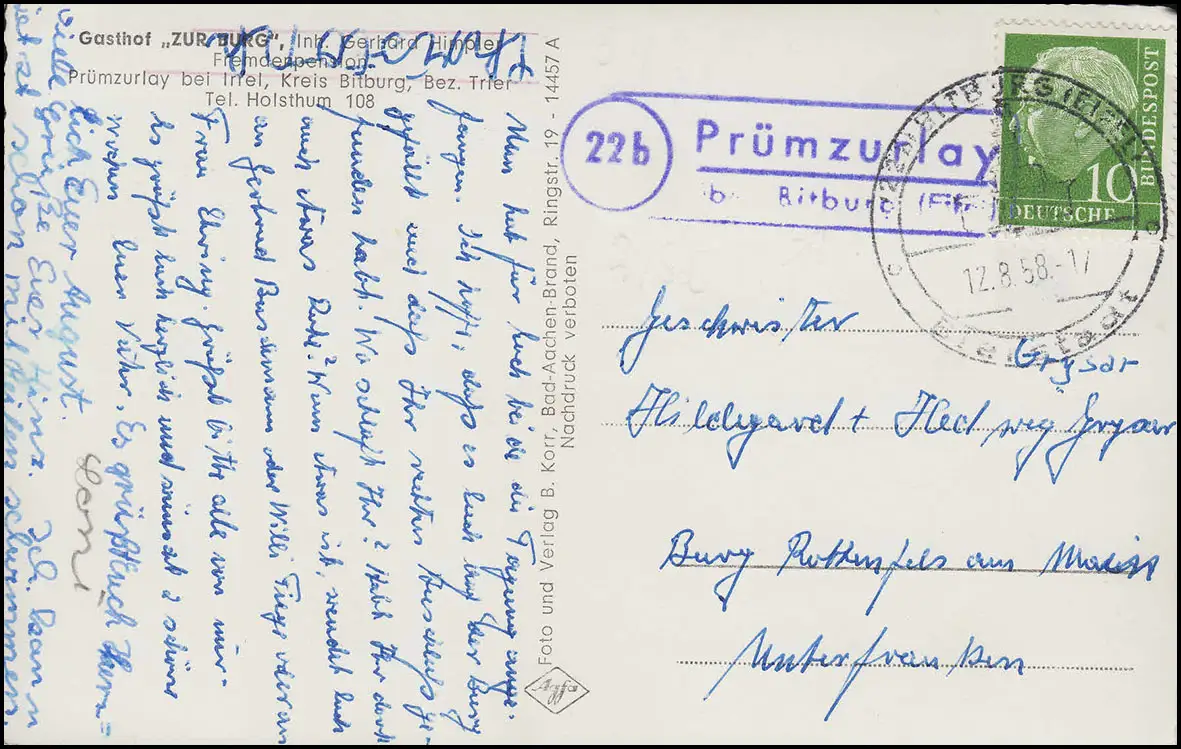 Gasthof „ZUR BURG", Inh. Gerhard Himpler
Fremdenpension
Prümzurlay bei Irrel, Kreis Bitburg, Bez. Trier
Tel. Holsthum 108
Nun hat für Euch beide die Tagung ange-
fangen. Ich hoffe, daß es Euch auf der Burg
gefällt und daß Ihr rechten Anschluß ge-
funden habt. Wo schlaft Ihr? Habt Ihr dort
auch etwas Ruhe? Wenn etwas ist, wendet Euch
an Gertrud Bussmann oder Willi oder an
Frau Ehring. Grüßt bitte alle von mir.
Es grüßt Euch herzlich und wünscht 2 schöne
Wochen Euer Vater. Es grüßt Euch
lich Euer August.
Viele Grüße Euer Heinz. Ich kann
jetzt schon mit schwimmen.
Leoni
Foto und Verlag B. Korr, Bad-Aachen-Brand, Ringstr. 19 - 14457 A
Nachdruck verboten
Agfa
22b
Prümzurlay
Bitburg (Eifel)
(22b) BITBURG (EIFEL)
12.8.58.-17
c
Bierstadt
BUNDESPOST
10
DEUTSCHE
Geschwister
Grysar
Hildegard + Hedweg Grysar
Burg Rothenfels am Main
Unterfranken